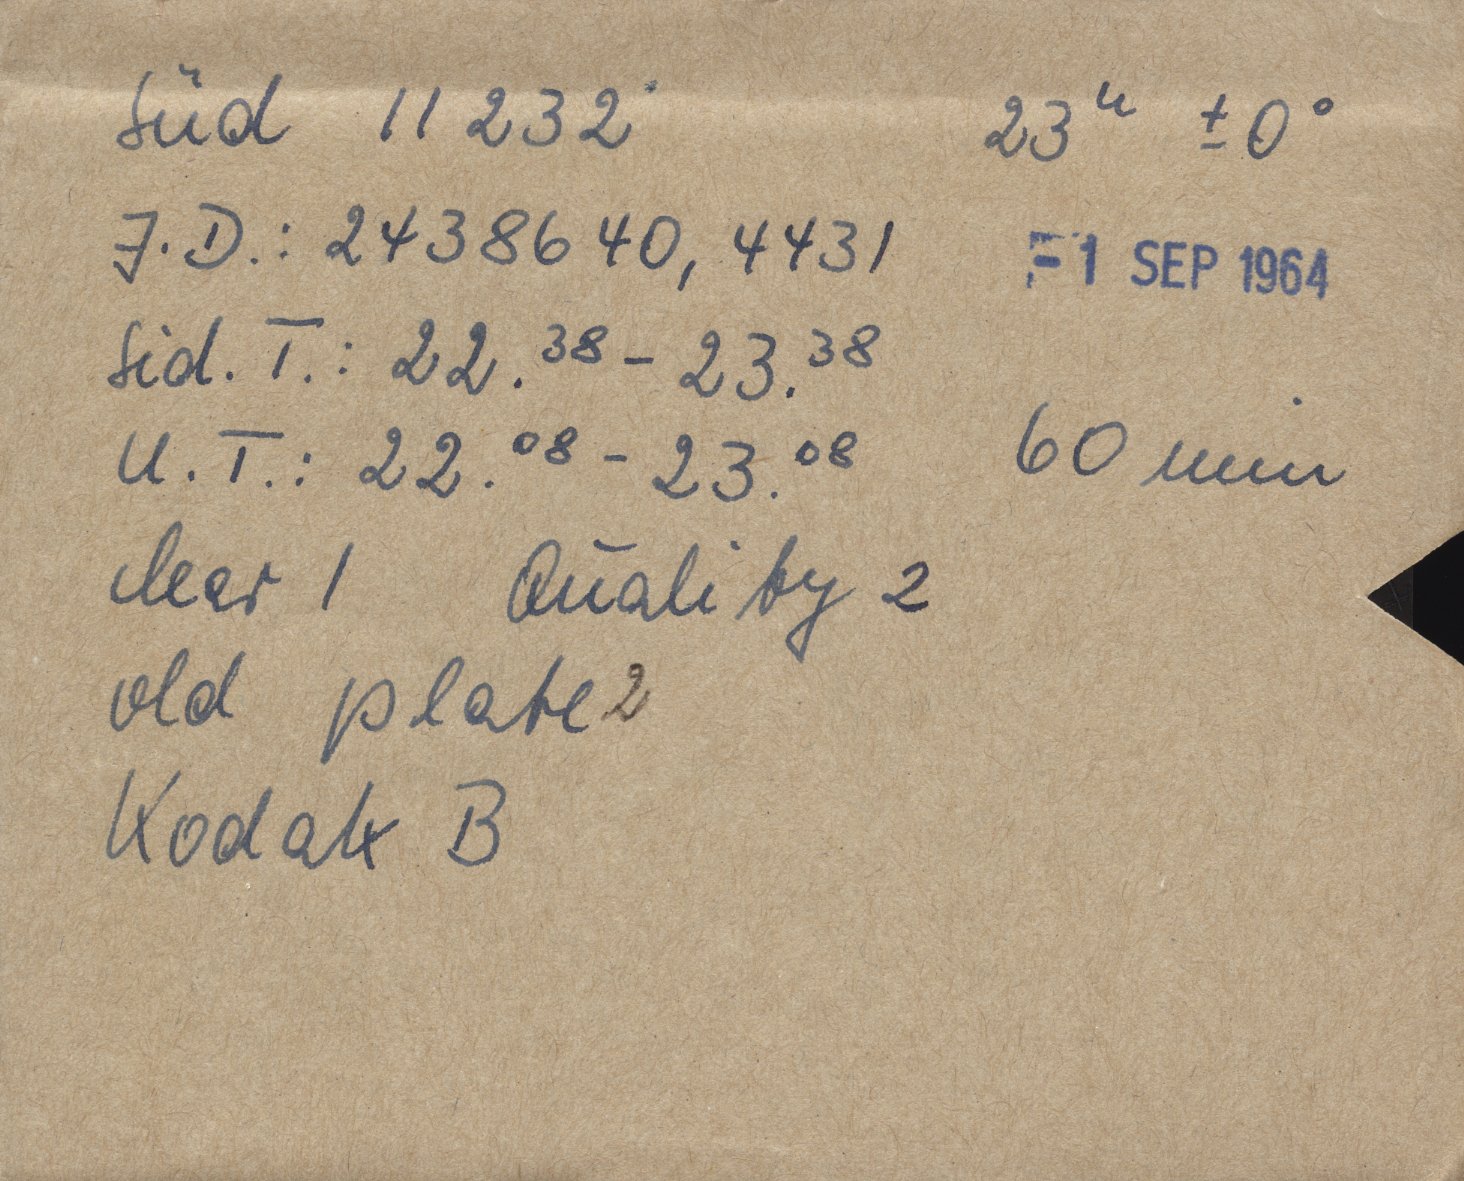 Süd 11232 23ʰ ±0°
J.D.: 2438640,4431 -1 SEP 1964
Sid. T.: 22.³⁸ - 23.³⁸
U.T.: 22.⁰⁸ - 23.⁰⁸ 60 min
clear 1 Quality 2
old plate 2
Kodak B